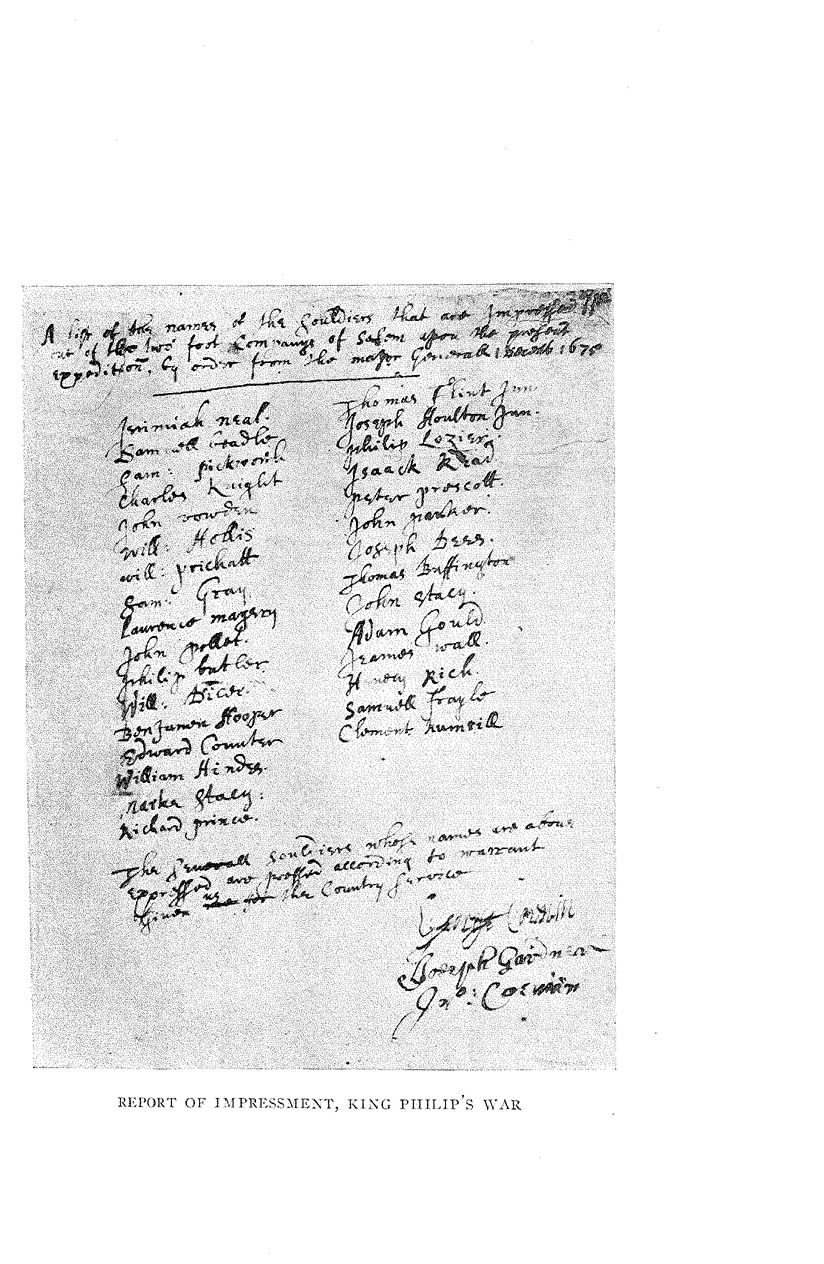 A list of the names of the Souldiers that are Impressed
out of the two foot Companys of Salem upon the present
Expedition, by order from the major Generall 1675
Jerimiah neal.
Samuell beadle
Sam: pickworth
Charles Knight
John
Will: Hollis
will: prichatt
Sam: Gray
Laurence
John pollet.
philip butler
Will:
Benjamen Hooper
Edward Counter
William Hindes.
Stacy:
Richard prince.
Thomas Flint Jun
Joseph Houlton Jun.
philip Lozier
Isaack Read
peter prescott.
John parker.
Joseph
Thomas Buffington
John Stacy.
Adam Gould
Jeames wall.
Henery Rich.
Samuell
Clement Rumsill
The Severall Souldiers whose names are above
expressed are pressed according to warrant
Given us for the Country Service
George
Joseph Gardner
Jno: Corwin
REPORT OF IMPRESSMENT, KING PHILIP'S WAR